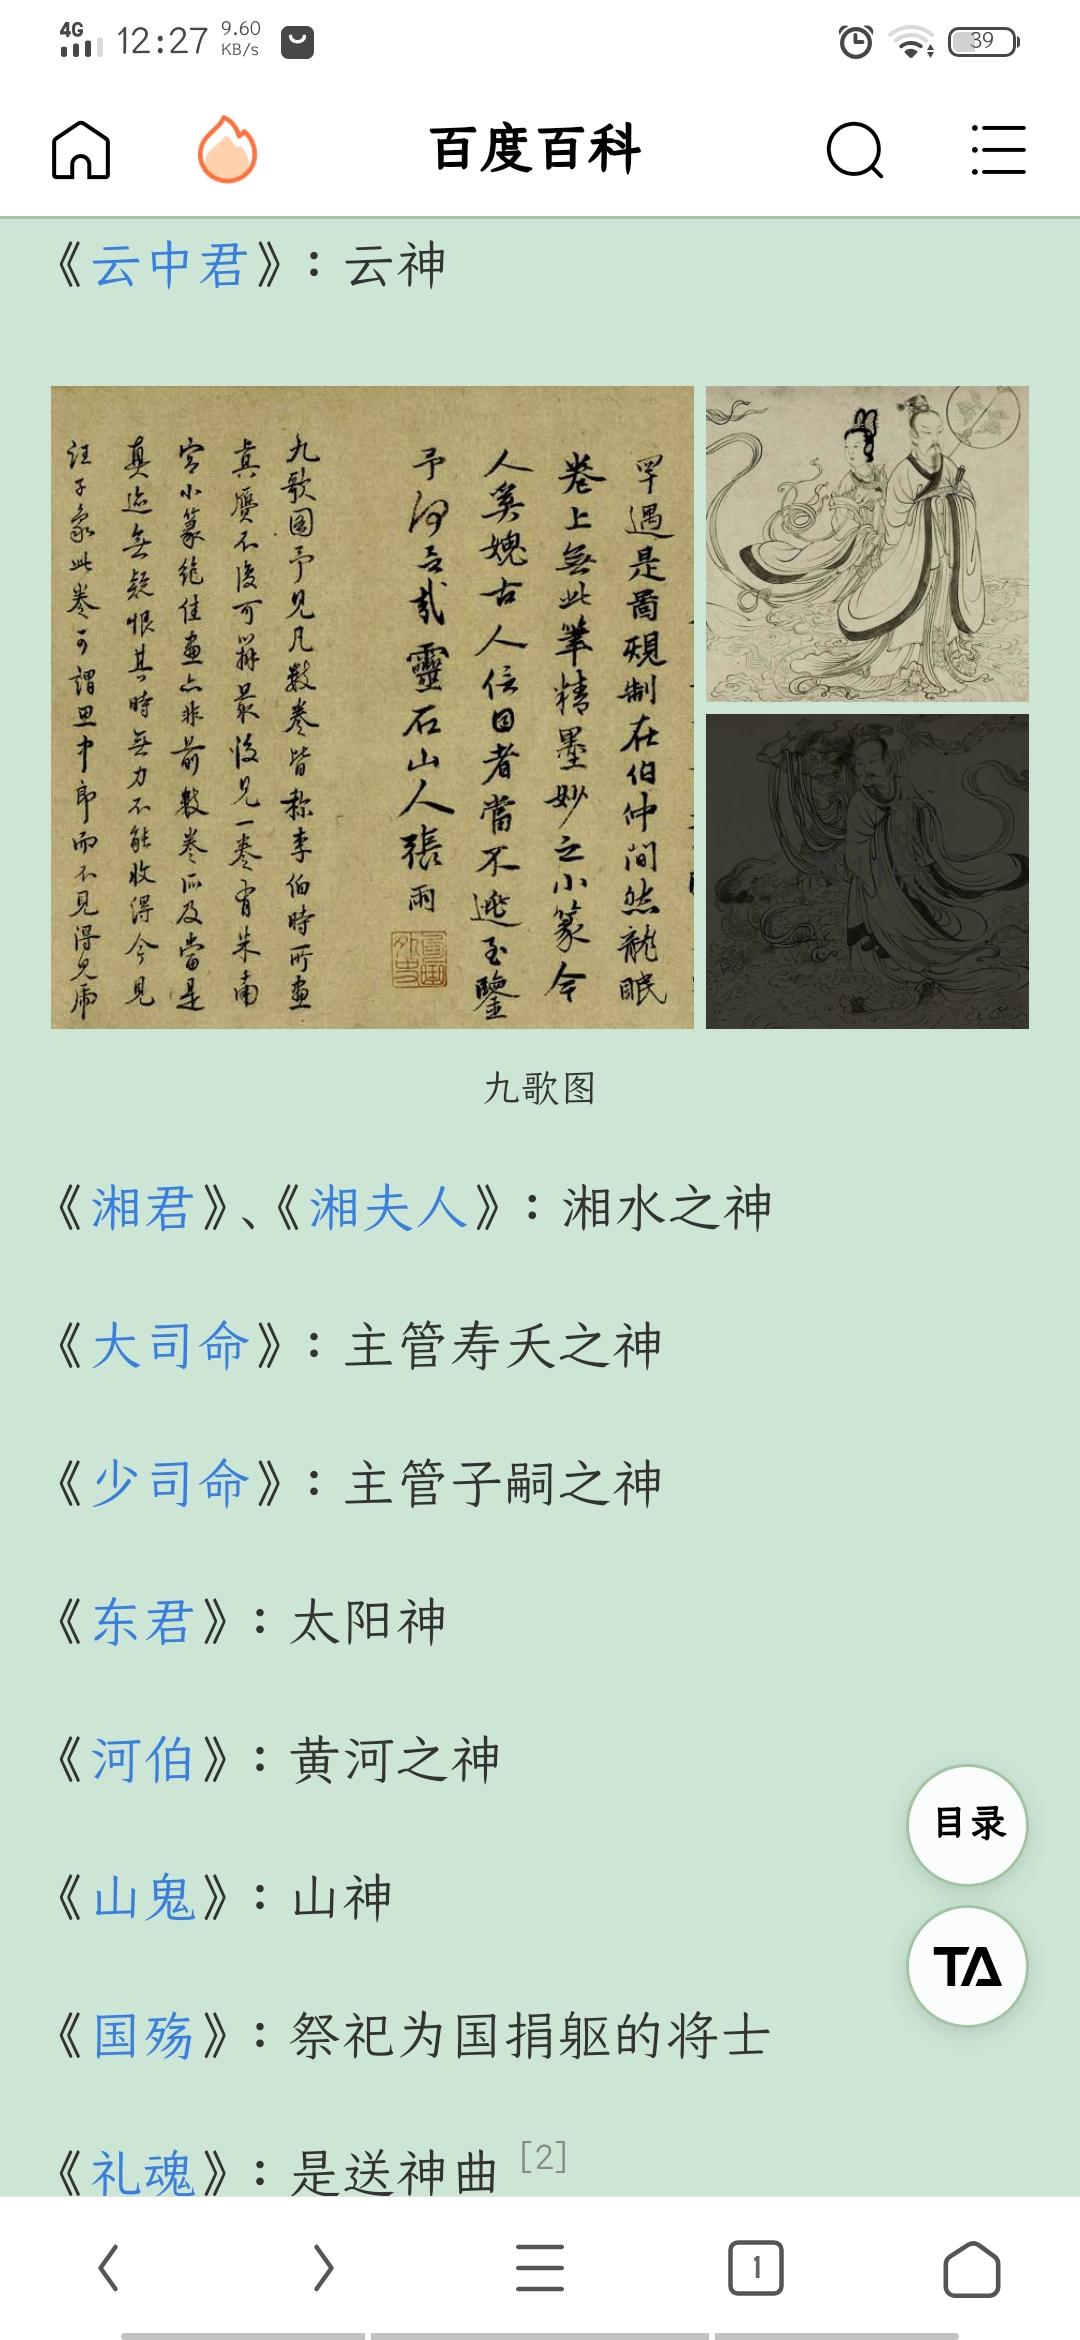 4G 12:27 9.60 KB/s 39
百度百科
《云中君》：云神
罕遇是图规制在伯仲间然龍眠
卷上無此筆精墨妙之小篆今
人奚媿古人信目者當不逃玉鑒
靈石山人張雨
九歌图予見凡數卷皆称李伯時所畫
真贗不復可辨最後見一卷有朱南
宫小篆絶佳畫亦非前數卷所及當是
真迹無疑恨其時無力不能收得今見
汪子象此卷可謂思中郎而不見得見虎
九歌图
《湘君》、《湘夫人》：湘水之神
《大司命》：主管寿夭之神
《少司命》：主管子嗣之神
《东君》：太阳神
《河伯》：黄河之神
《山鬼》：山神
目录
TA
《国殇》：祭祀为国捐躯的将士
《礼魂》：是送神曲 [2]
1